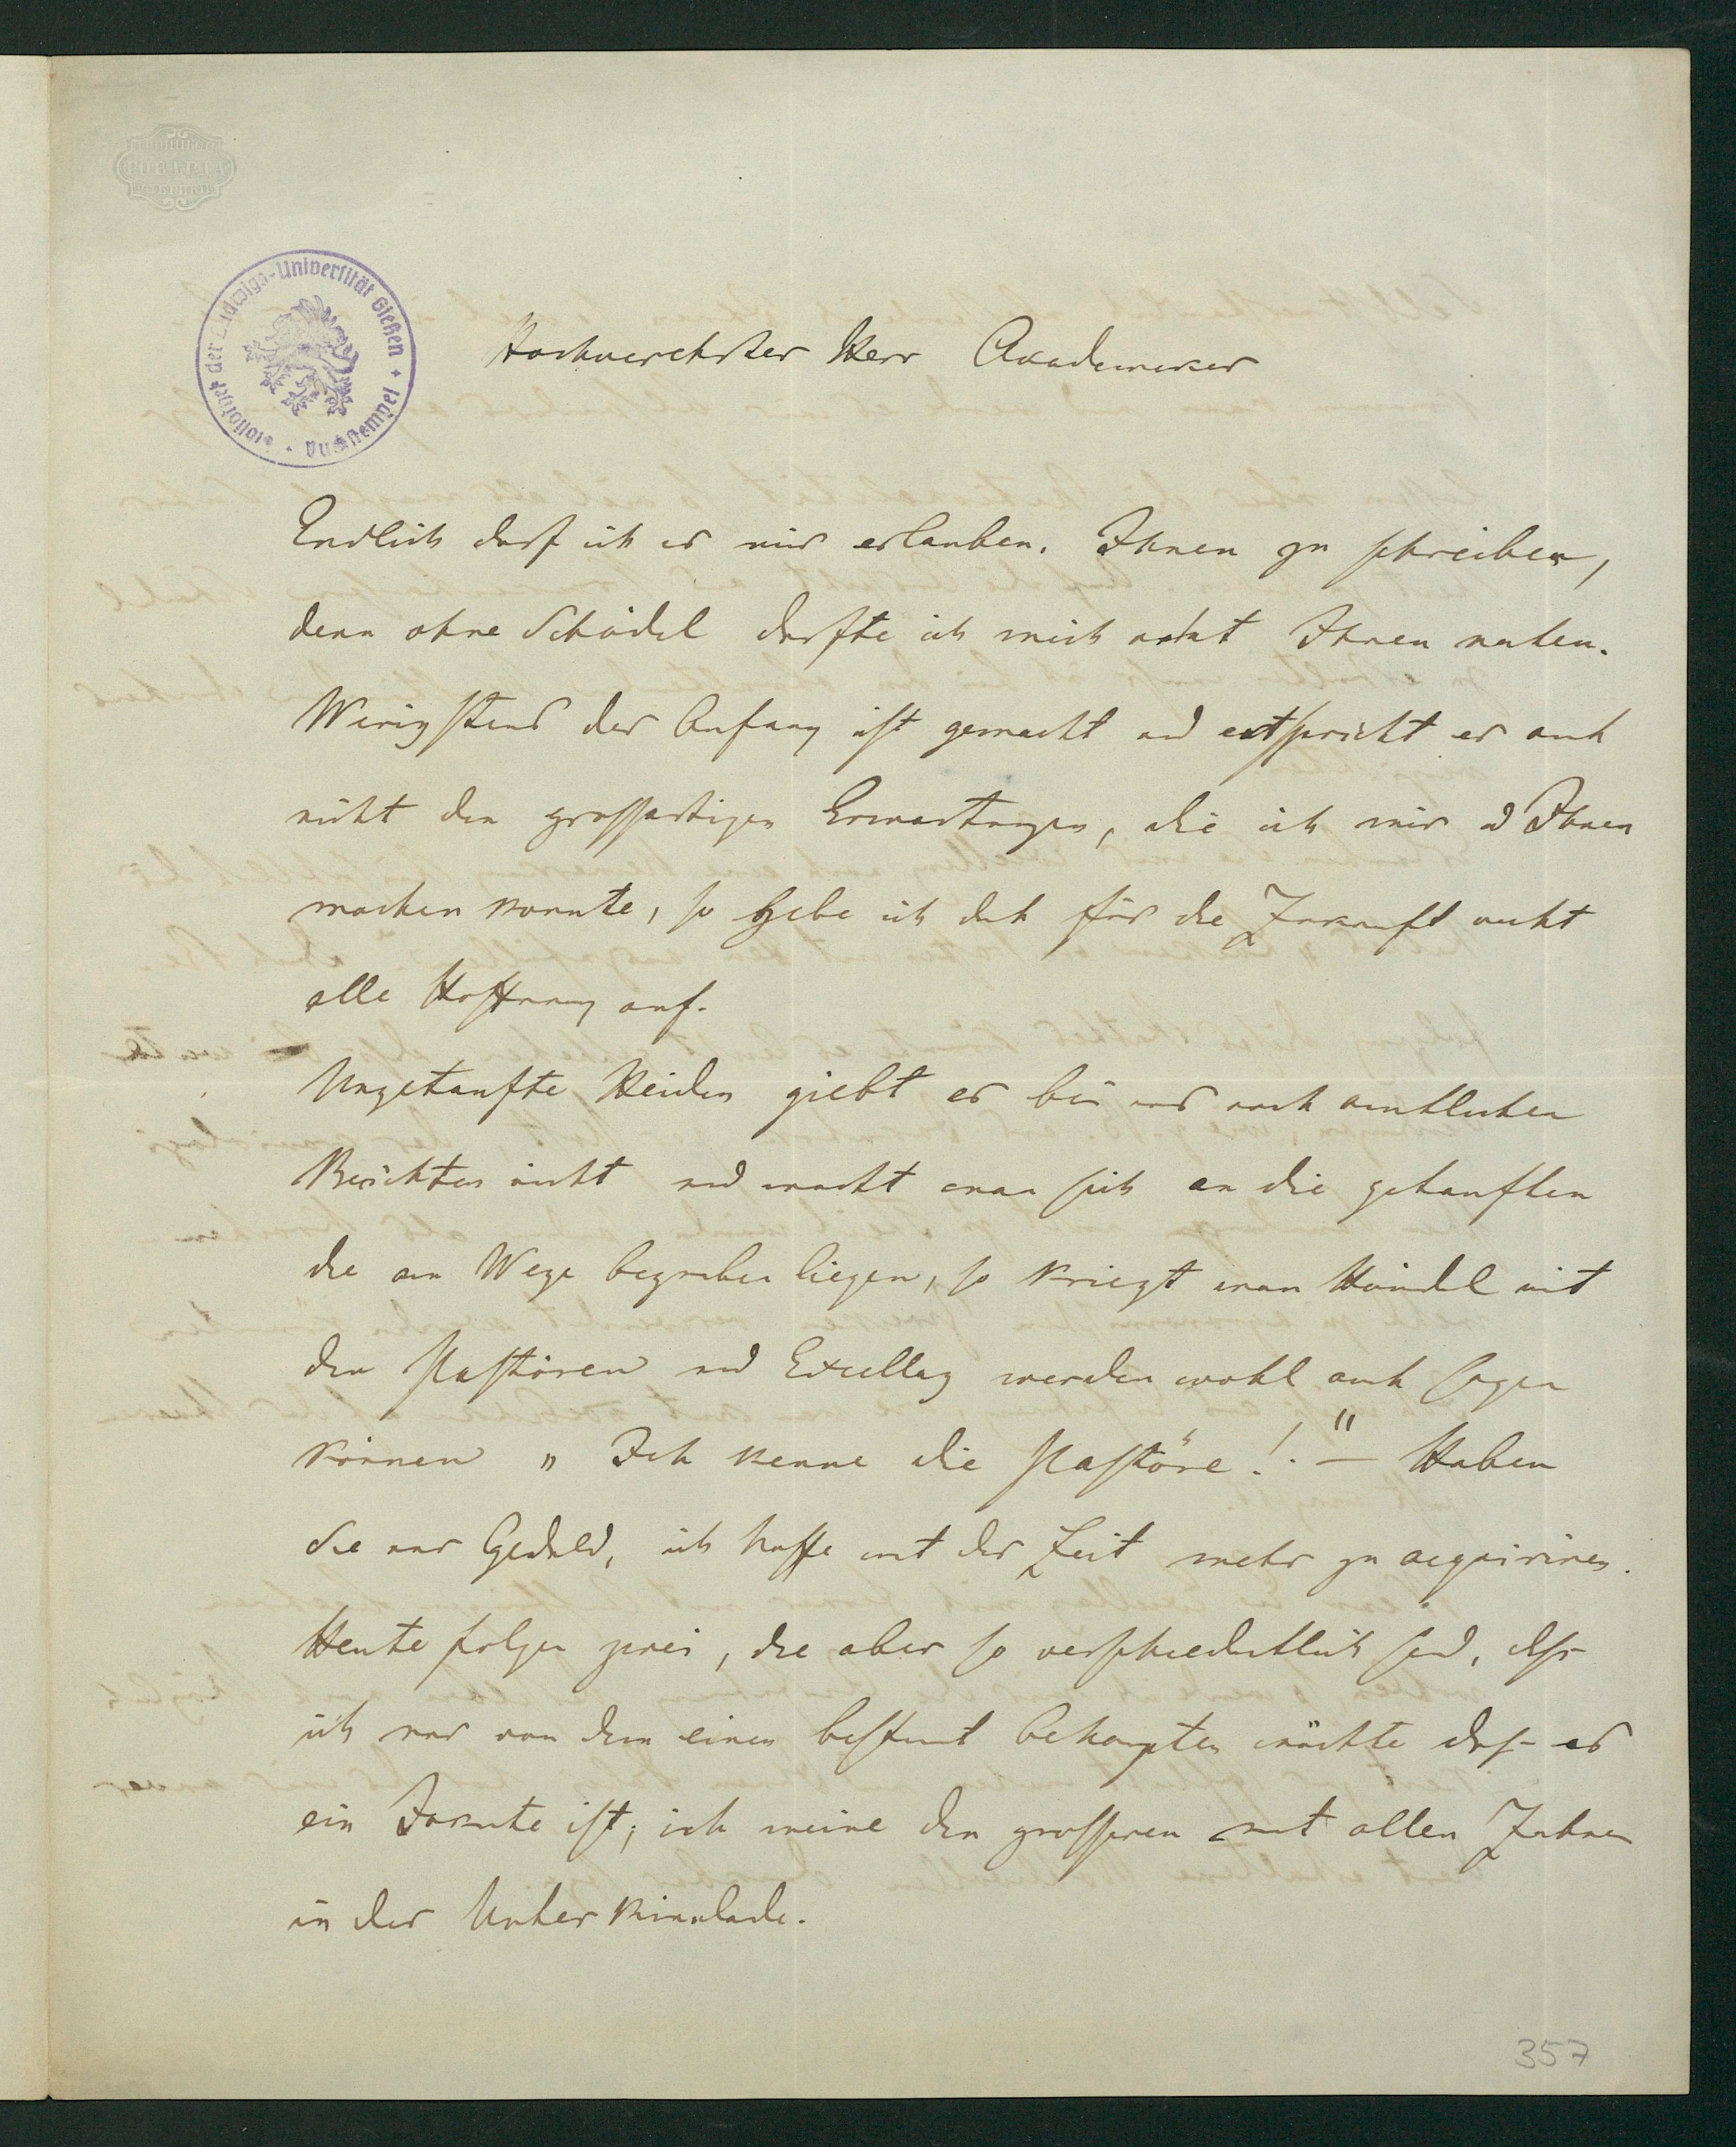 Bibliothek der Ludwigs-Universität Gießen
Buchstempel
Hochverehrter Herr Akademiker
Endlich darf ich es mir erlauben, Ihnen zu schreiben,
denn ohne Schädel durfte ich mich nicht Ihnen nahen.
Wenigstens der Anfang ist gemacht und entspricht er auch
nicht den grossartigen Erwartungen, die ich mir u Ihnen
machen konnte, so gebe ich doch für die Zukunft nicht
alle Hoffnung auf.
Ungetaufte Heiden giebt es bei uns nach amtlichen
Berichten nicht und macht man sich an die getauften
die am Wege begraben liegen, so kriegt man Händel mit
den Pastören und Excellenz werden wohl auch sagen
können „Ich kenne die Pastöre!" — Haben
Sie nur Geduld, ich hoffe mit der Zeit mehr zu acquiriren.
Heute folgen zwei, die aber so verschiedentlich sind, dass
ich nur von dem einen bestimmt behaupten möchte dass es
ein Jakute ist; ich meine den grösseren mit allen Zähnen
in der Unterkinnlade.
357